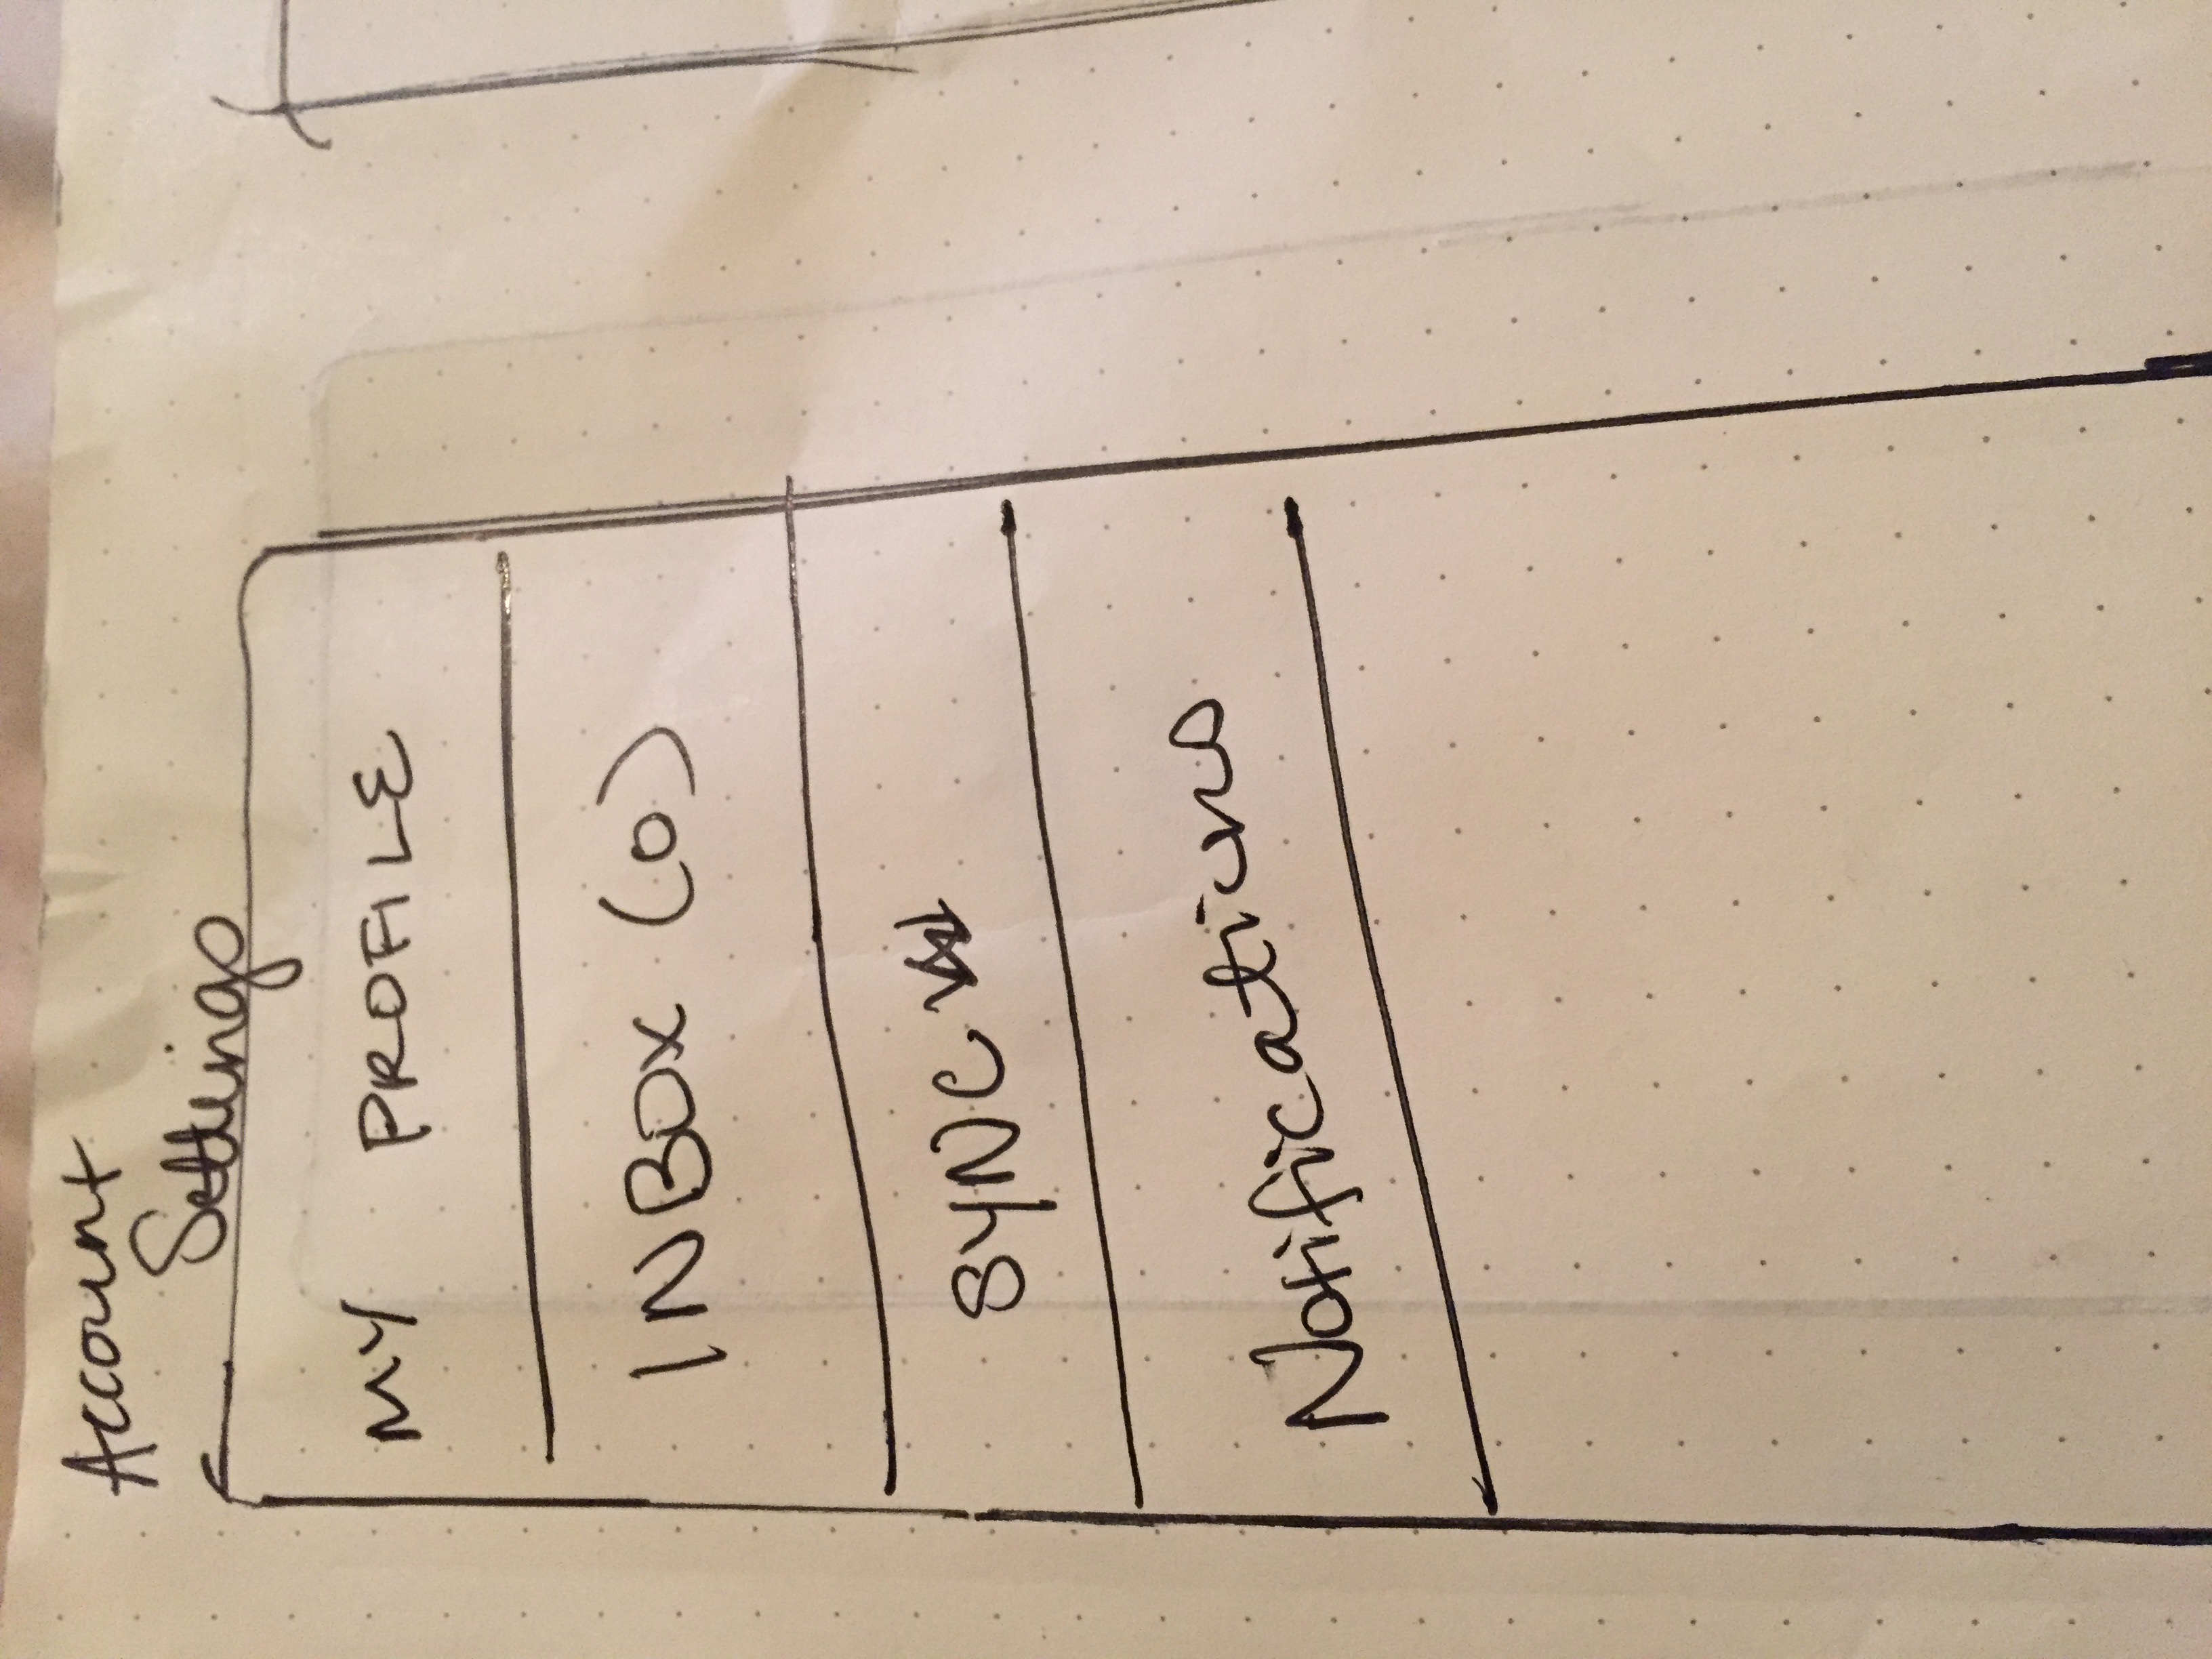 Account
Settings
MY PROFILE
INBOX (0)
SYNC
Notifications